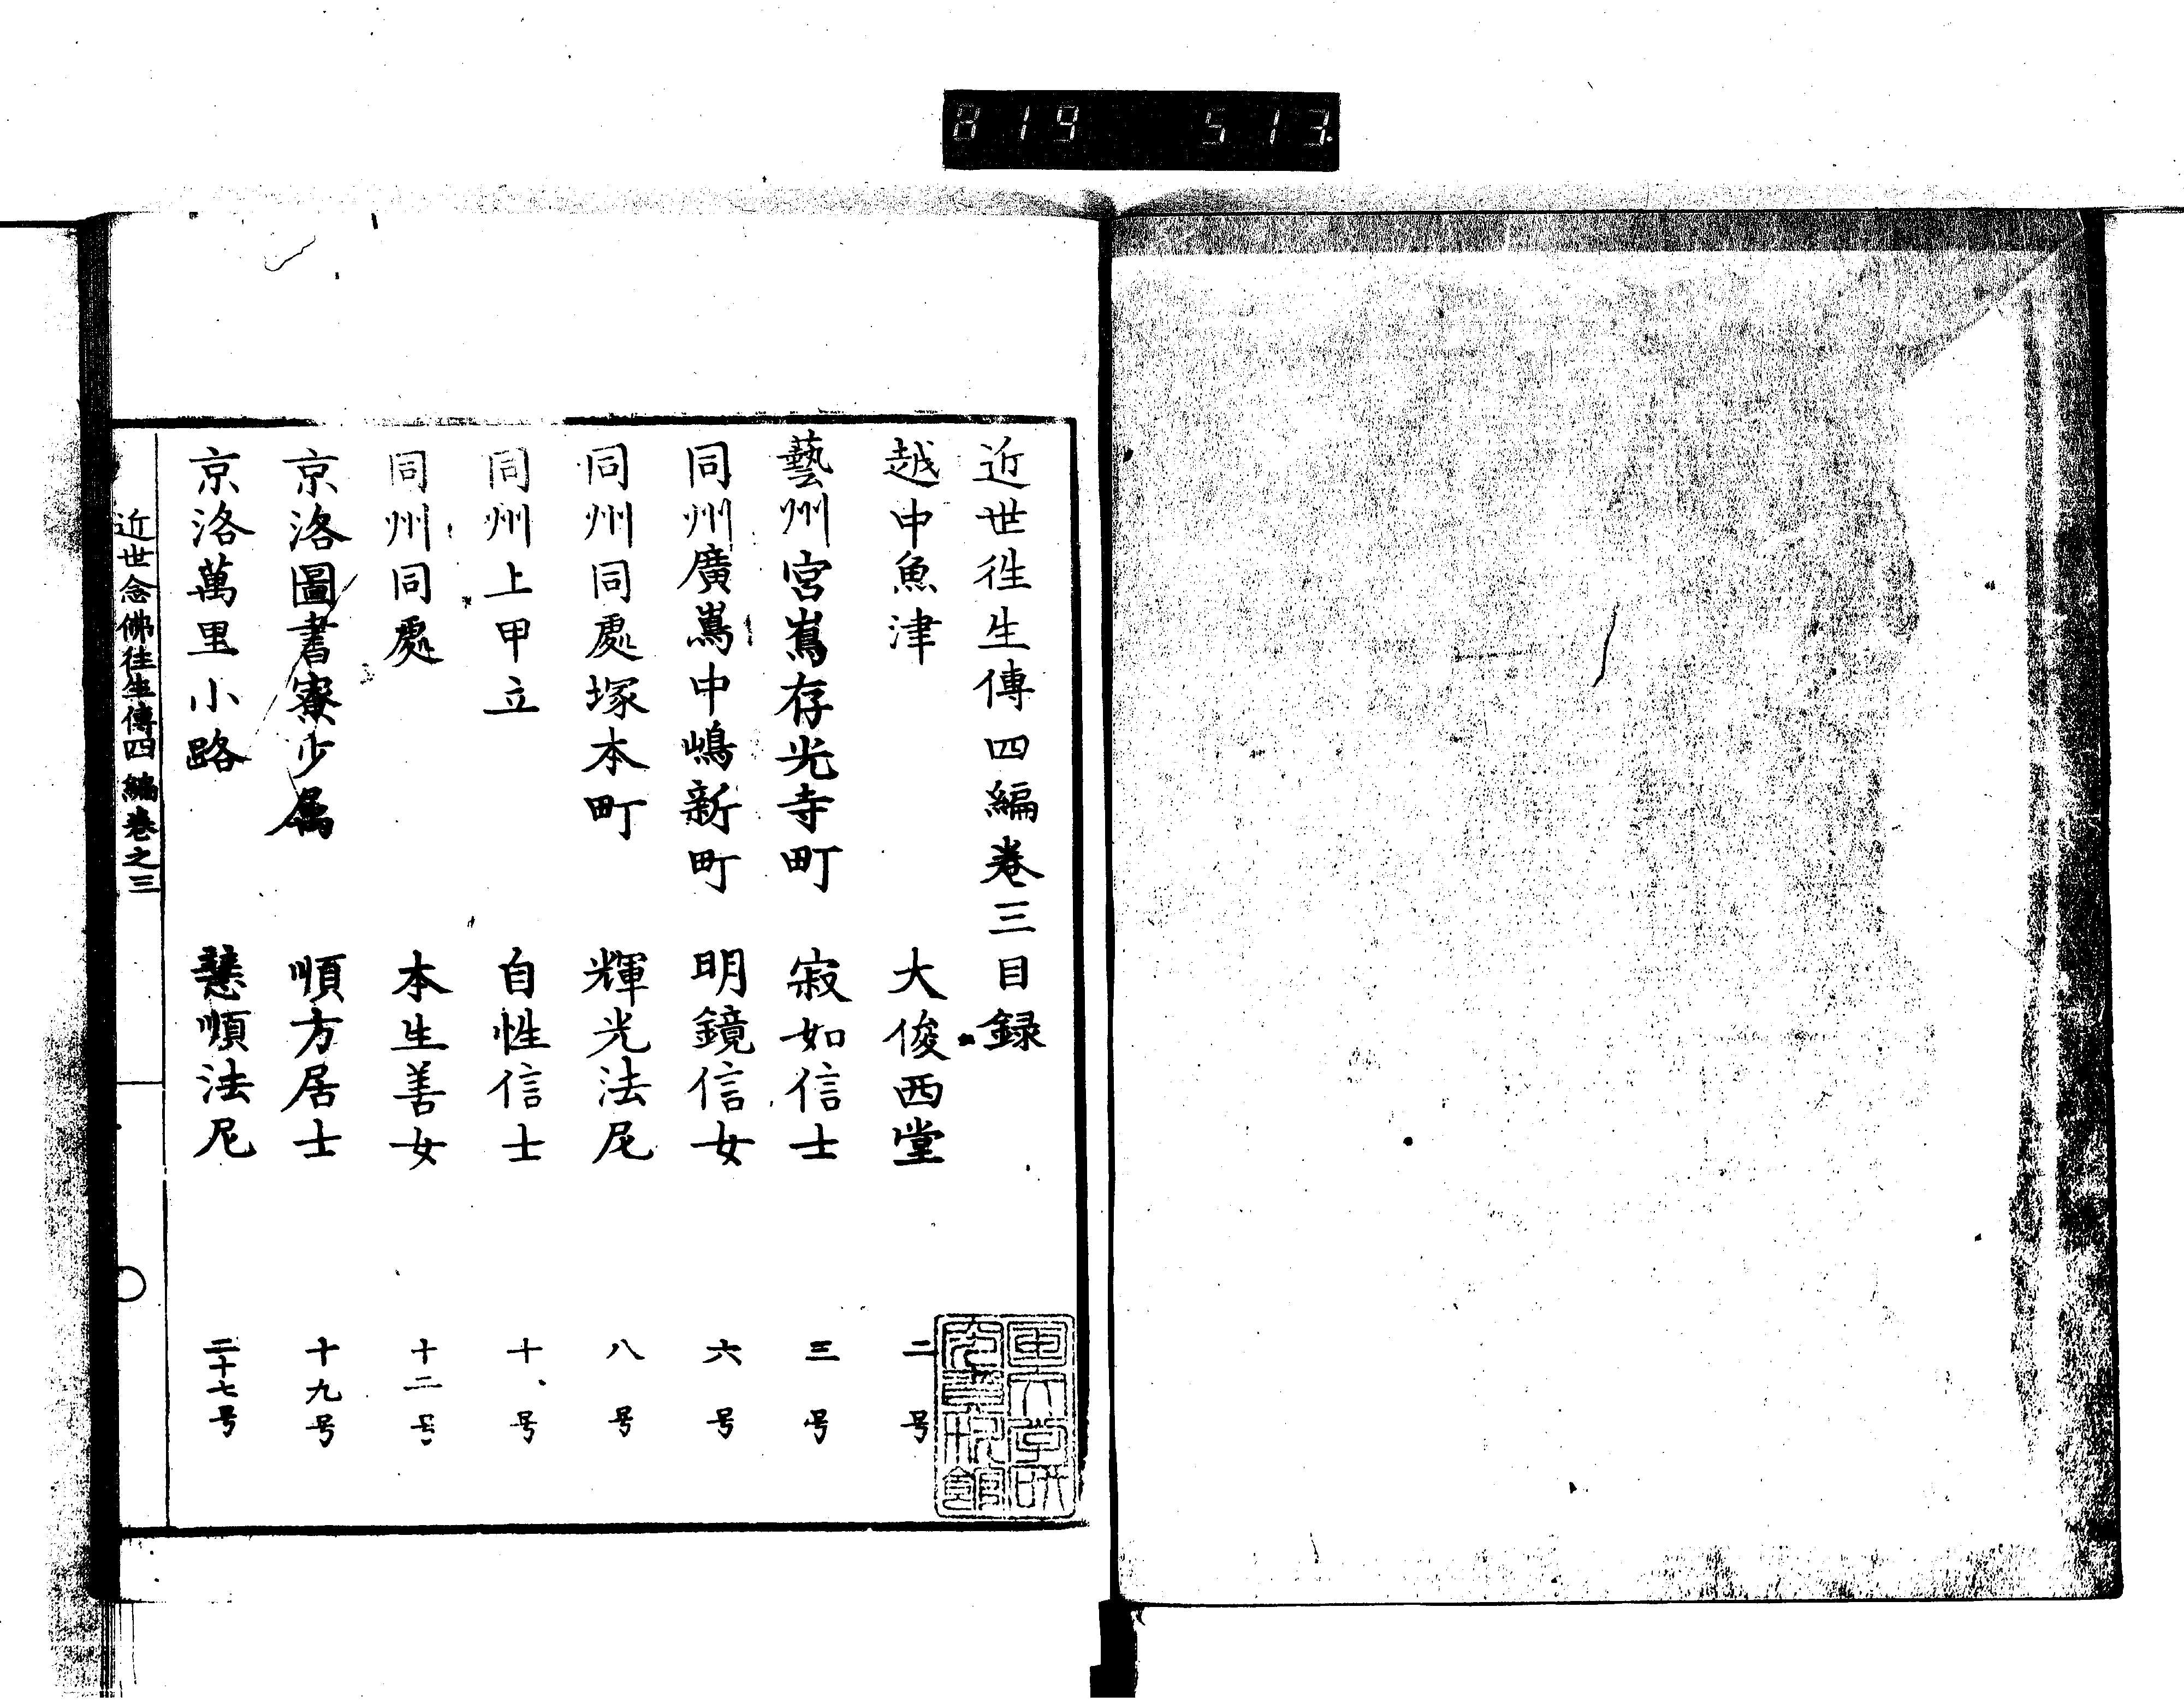 819 513
近世往生傳四編卷三目録
越中魚津 大俊西堂 二号
藝州宮嶌存光寺町 寂如信士 三号
同州廣嶌中嶋新町 明鏡信女 六号
同州同處塚本町 輝光法尼 八号
同州上甲立 自性信士 十号
同州同處 本生善女 十二号
京洛圖書寮少属 順方居士 十九号
京洛萬里小路 慧順法尼 二十七号
近世念佛往生傳四編卷之三